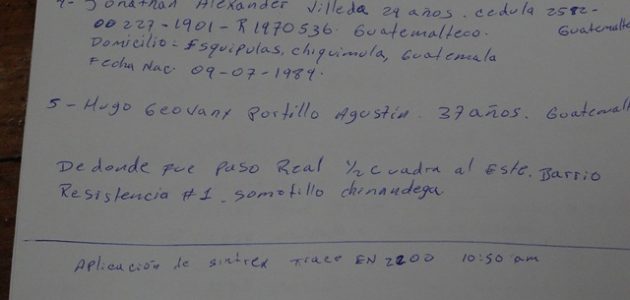 4- Jonathan Alexander Villeda 29 años. cedula 2582-
00227-1901-R1970536. Guatemalteco. Guatemalte
Domicilio: Esquipulas, chiquimula, Guatemala
Fecha Nac. 09-07-1984.
5- Hugo Geovany Portillo Agustin. 37 años. Guatemalt
De donde fue Paso Real 1/2 cuadra al Este. Barrio
Resistencia #1. somotillo chinandega
Aplicación de sintrex trace EN 2200 10:50 am